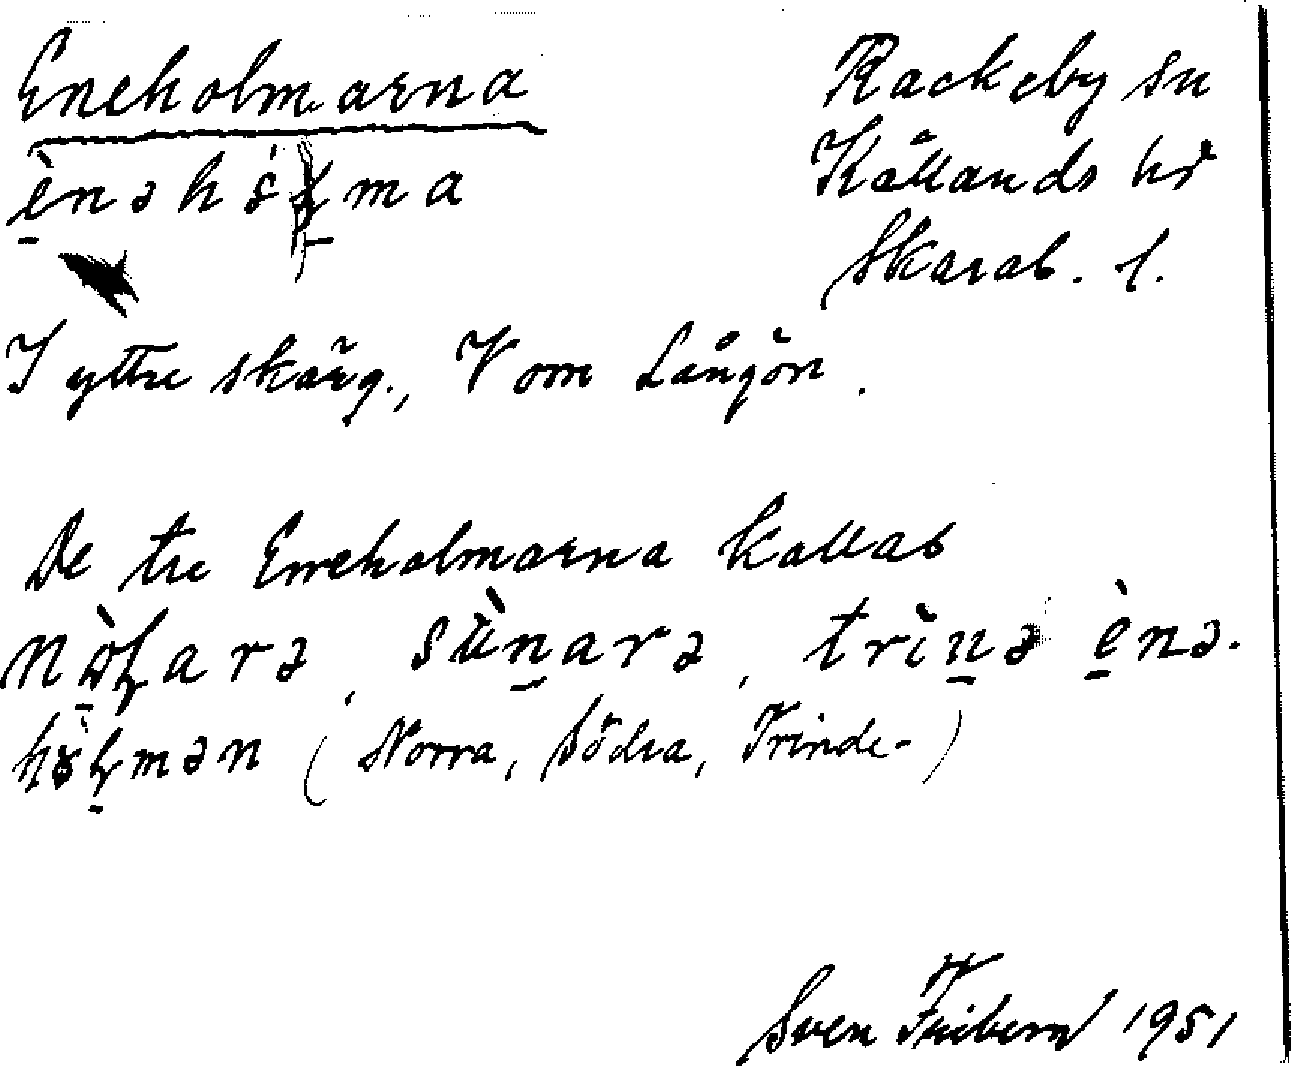 Eneholmarna
Rackeby sn
Kållands hd
Skarab. l.
I yttre skärg., V om Långön.
De tre Eneholmarna kallas
nɷ̀ɽarə, sùnarə, trìnə ènə-
(Norra, Södra, Trinde-)
Sven Fribern 1951